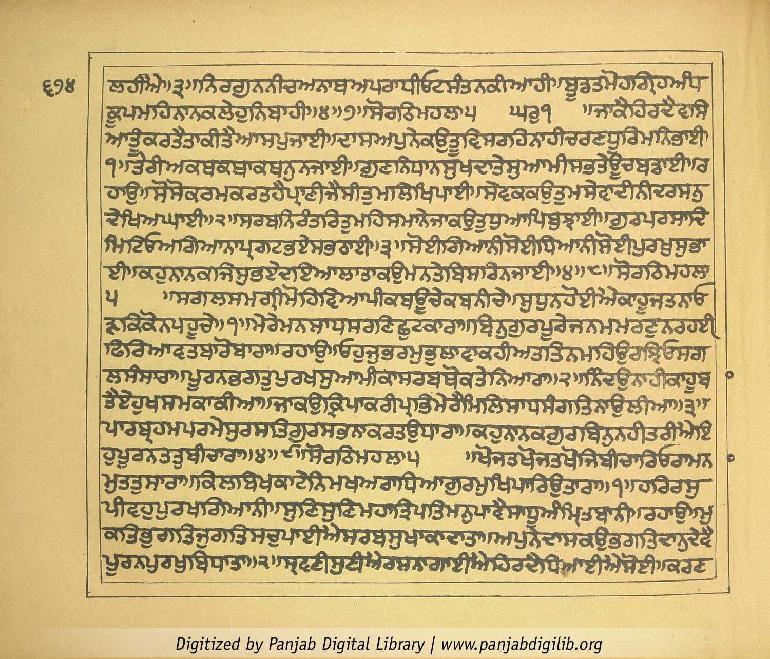 ੬੭੪
ਲਹੀਐ॥੩॥ਨਿਰਗੁਨਨੀਚਅਨਾਥਅਪਰਾਧੀਓਟਸੰਤਨਕੀਆਹੀ॥ਬੂਡਤਮੋਹਗ੍ਰਿਹਅੰਧ
ਕੂਪਮਹਿਨਾਨਕਲੇਹੁਨਿਬਾਹੀ॥੪॥੭॥ਸੋਰਠਿਮਹਲਾ੫ ਘਰੁ੧ ॥ਜਾਕੈਹਿਰਦੈਵਸਿ
ਆਤੂਕਰਤੈਤਾਕੀਤੈਆਸਪੁਜਾਈ॥ਦਾਸਅਪੁਨੇਕਉਤੂਵਿਸਰਹਿਨਾਹੀਚਰਣਧੂਰਿਮਨਿਭਾਈ
੧॥ਤੇਰੀਅਕਥਕਥਾਕਥਨੁਨਜਾਈ॥ਗੁਣਨਿਧਾਨਸੁਖਦਾਤੇਸੁਆਮੀਸਭਤੇਊਚਬਡਾਈ॥ਰ
ਹਾਉ॥ਸੋਸੋਕਰਮਕਰਤਹੈਪ੍ਰਾਣੀਜੈਸੀਤੁਮਲਿਖਿਪਾਈ॥ਸੇਵਕਕਉਤੁਮਸੇਵਾਦੀਨੀਦਰਸਨੁ
ਦੇਖਿਅਘਾਈ॥੨॥ਸਰਬਨਿਰੰਤਰਿਤੁਮਹਿਸਮਾਨੇਜਾਕਉਤੁਧੁਆਪਿਬੁਝਾਈ॥ਗੁਰਪਰਸਾਦਿ
ਮਿਟਿਓਅਗਿਆਨਾਪ੍ਰਗਟਭਏਸਭਠਾਈ॥੩॥ਸੋਈਗਿਆਨੀਸੋਈਧਿਆਨੀਸੋਈਪੁਰਖੁਸੁਭਾ
ਈ॥ਕਹੁਨਾਨਕਜਿਸੁਭਏਦਇਆਲਾਤਾਕਉਮਨਤੇਬਿਸਰਿਨਜਾਈ॥੪॥੮॥ਸੋਰਠਿਮਹਲਾ
੫ ॥ਸਗਲਸਮਗ੍ਰੀਮੋਹਿਵਿਆਪੀਕਬਊਚੇਕਬਨੀਚੇ॥ਸੁਧੁਨਹੋਈਐਕਾਹੂਜਤਨਾਓ
ੜਕਿਕੋਨਪਹੂਚੇ॥੧॥ਮੇਰੇਮਨਸਾਧਸਰਣਿਛੁਟਕਾਰਾ॥ਬਿਨੁਗੁਰਪੂਰੇਜਨਮਮਰਣੁਨਰਹਈ
ਫਿਰਿਆਵਤਬਾਰੋਬਾਰਾ॥ਰਹਾਉ॥ਓਹੁਜੁਭਰਮੁਭੁਲਾਵਾਕਹੀਅਤਤਿਨਮਹਿਉਰਝਿਓਸਗ
ਲਸੰਸਾਰਾ॥ਪੂਰਨਭਗਤੁਪੁਰਖਸੁਆਮੀਕਾਸਰਬਥੋਕਤੇਨਿਆਰਾ॥੨॥ਨਿੰਦਉਨਾਹੀਕਾਹੂਬ
ਤੈਏਹੁਖਸਮਕਾਕੀਆ॥ਜਾਕਉਕ੍ਰਿਪਾਕਰੀਪ੍ਰਭਿਮੇਰੈਮਿਲਿਸਾਧਸੰਗਤਿਨਾਉਲੀਆ॥੩॥
ਪਾਰਬ੍ਰਹਮਪਰਮੇਸੁਰਸਤਿਗੁਰਸਭਨਾਕਰਤਉਧਾਰਾ॥ਕਹੁਨਾਨਕਗੁਰਬਿਨੁਨਹੀਤਰੀਐਇ
ਹੁਪੂਰਨਤਤੁਬੀਚਾਰਾ॥੪॥੯॥ਸੋਰਠਿਮਹਲਾ੫ ॥ਖੋਜਤਖੋਜਤਖੋਜਿਬੀਚਾਰਿਓਰਾਮਨਾ
ਮੁਤਤੁਸਾਰਾ॥ਕਿਲਬਿਖਕਾਟੇਨਿਮਖਅਰਾਧਿਆਗੁਰਮੁਖਿਪਾਰਿਉਤਾਰਾ॥੧॥ਹਰਿਰਸੁ
ਪੀਵਹੁਪੁਰਖਗਿਆਨੀ॥ਸੁਣਿਸੁਣਿਮਹਾਤ੍ਰਿਪਤਿਮਨੁਪਾਵੈਸਾਧੂਅੰਮ੍ਰਿਤਬਾਨੀ॥ਰਹਾਉ॥ਮੁ
ਕਤਿਭੁਗਤਿਜੁਗਤਿਸਚੁਪਾਈਐਸਰਬਸੁਖਾਕਾਦਾਤਾ॥ਅਪੁਨੇਦਾਸਕਉਭਗਤਿਦਾਨੁਦੇਵੈ
ਪੂਰਨਪੁਰਖੁਬਿਧਾਤਾ॥੨॥ਸ੍ਰਵਣੀਸੁਣੀਐਰਸਨਾਗਾਈਐਹਿਰਦੈਧਿਆਈਐਸੋਈ॥ਕਰਣ
Digitized by Panjab Digital Library | www.panjabdigilib.org